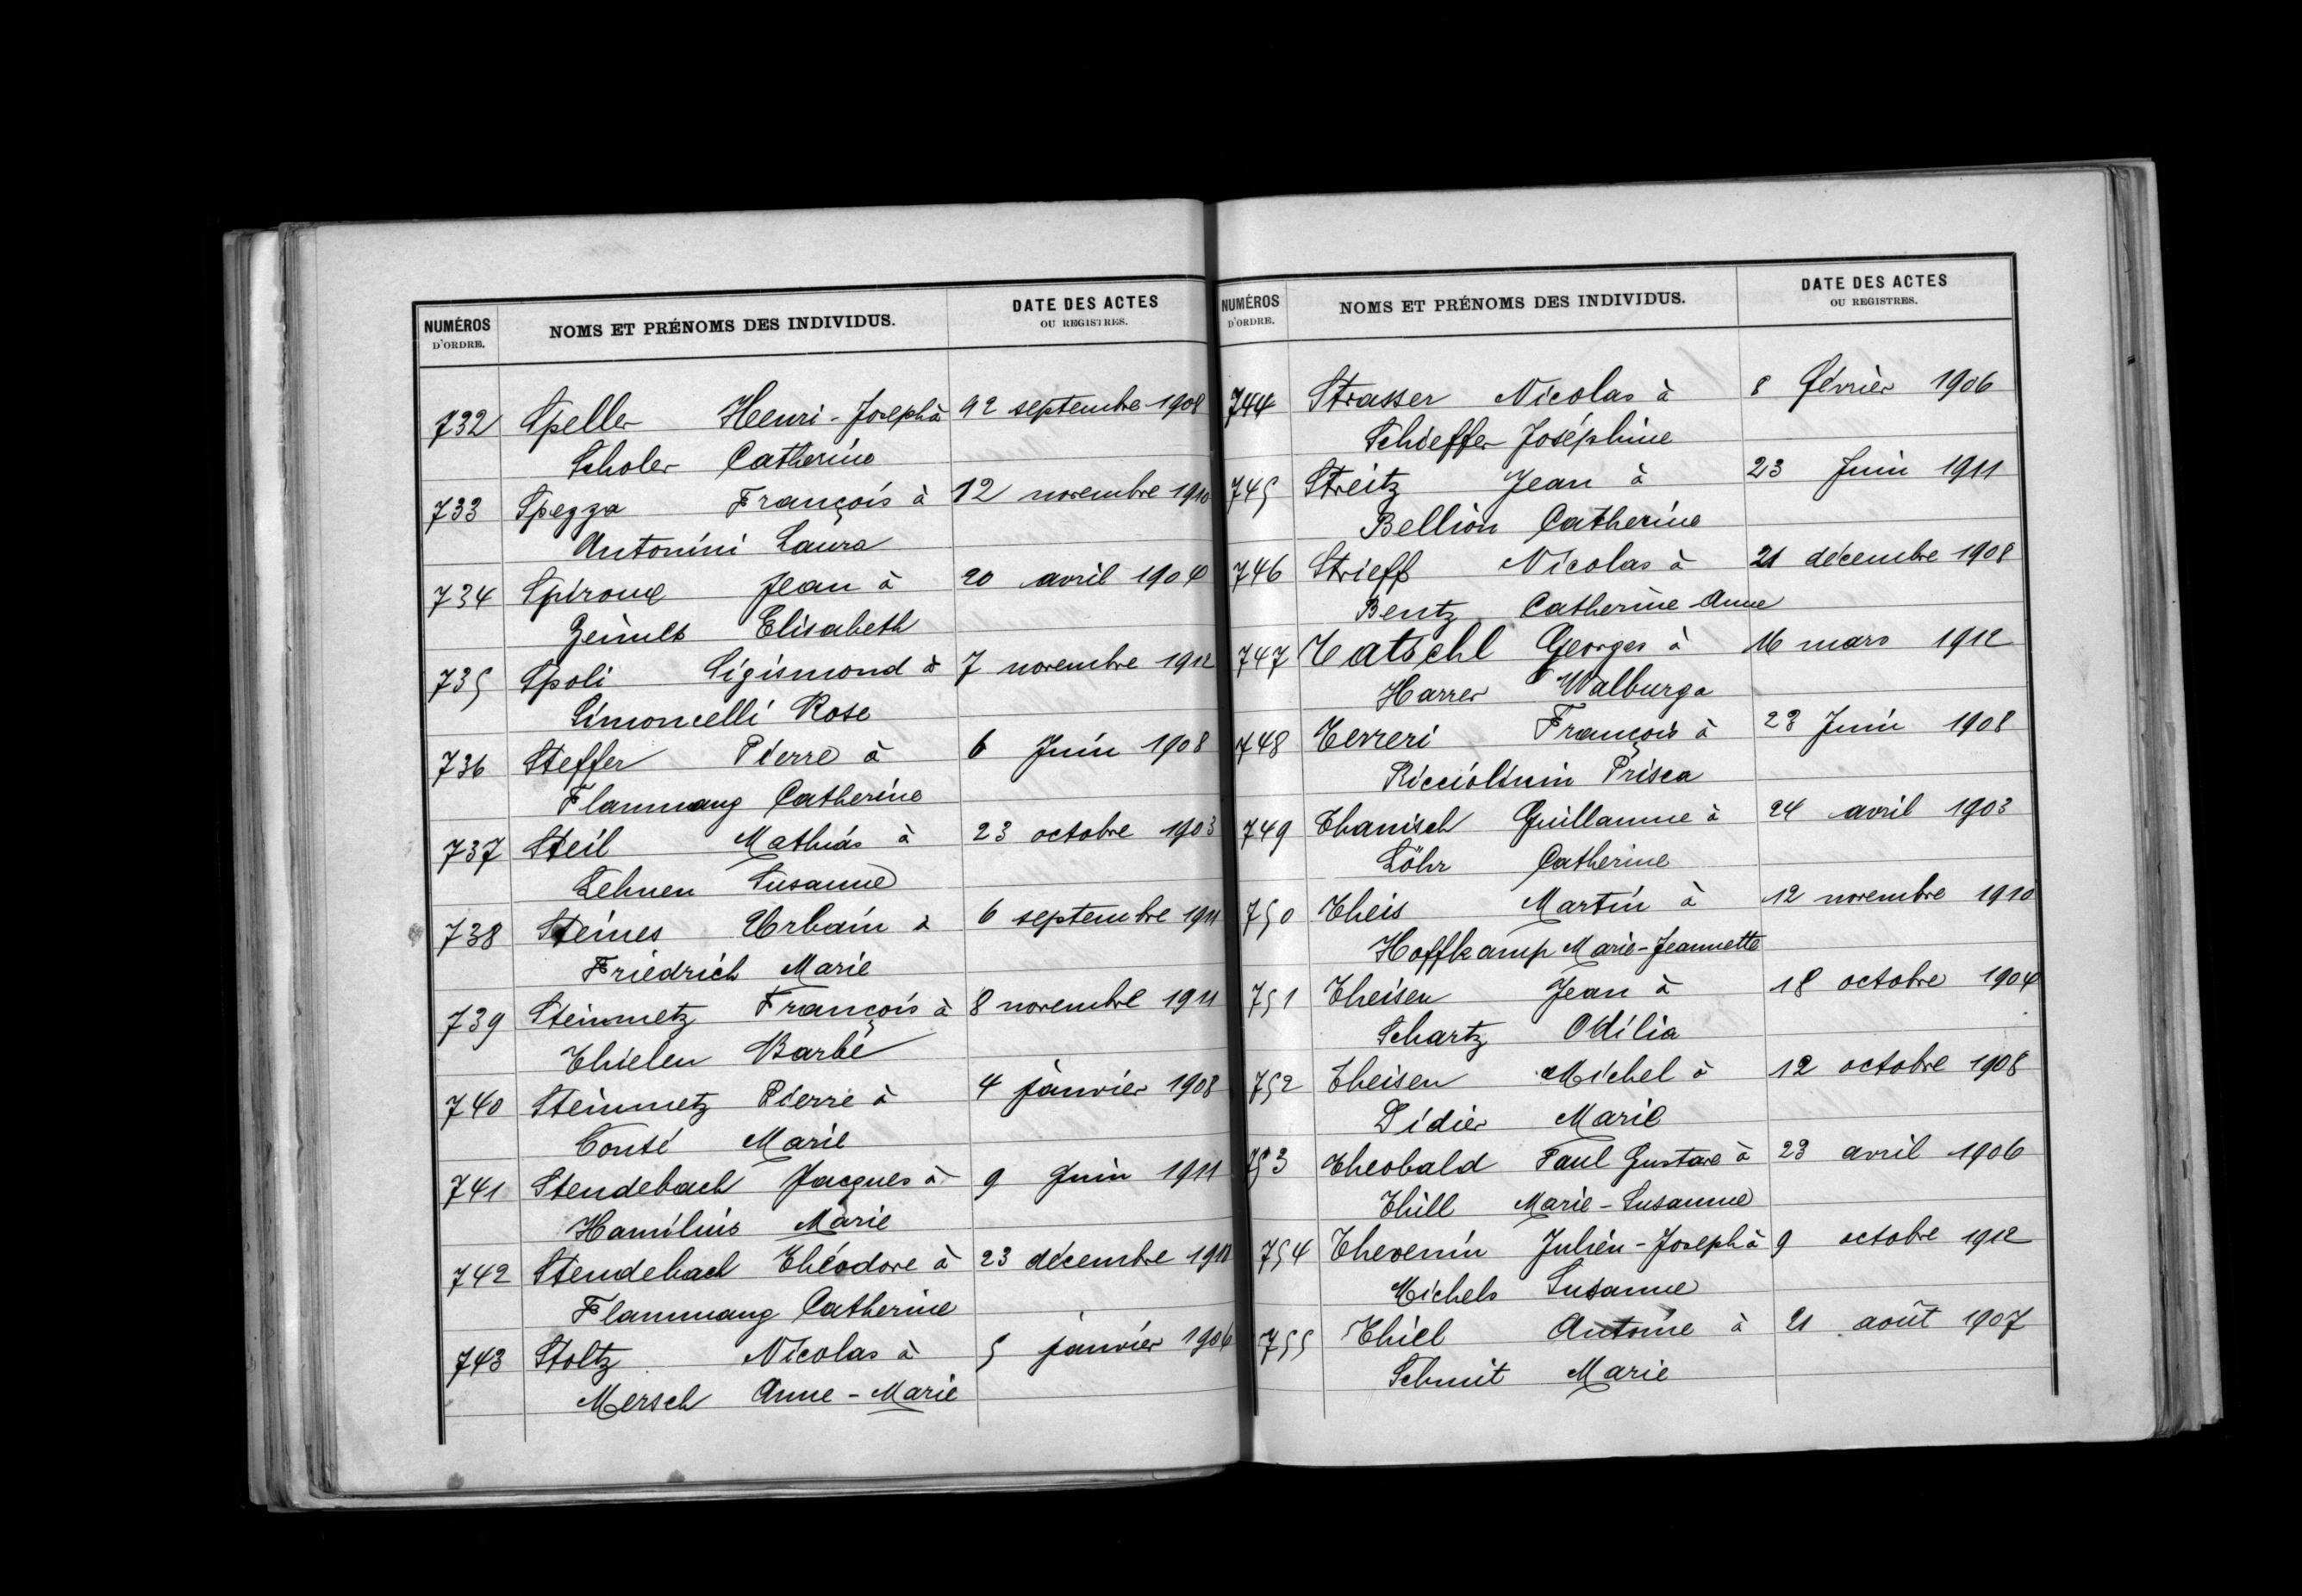 NUMÉROS D'ORDRE. NOMS ET PRÉNOMS DES INDIVIDUS. DATE DES ACTES OU REGISTRES.
732 Speller Henri-Joseph à 12 septembre 1908
Scholer Catherine
733 Spezza François à 12 novembre 1910
Antonini Laura
734 Spiroux Jean à 20 avril 1904
Elisabeth
735 Spoli Sigismond à 7 novembre 1912
Simoncelli Rose
736 Steffer Pierre à 6 Juin 1908
Flammang Catherine
737 Steil Mathias à 23 octobre 1903
Lehnen Susanne
738 Steines Urbain à 6 septembre 1911
Friedrich Marie
739 Steinmetz François à 8 novembre 1911
Thielen Barbe
740 Steinmetz Pierre à 4 janvier 1908
Conté Marie
741 Stendebach Jacques à 9 Juin 1911
Hamilius Marie
742 Stendebach Théodore à 23 décembre
Flammang Catherine
743 Stoltz Nicolas à 5 janvier 1906
Mersch Anne-Marie
NUMÉROS D'ORDRE. NOMS ET PRÉNOMS DES INDIVIDUS. DATE DES ACTES OU REGISTRES.
744 Strasser Nicolas à 8 février 1906
Schieffer Joséphine
745 Streitz Jean à 23 Juin 1911
Bellion Catherine
746 Strieff Nicolas à 21 décembre 1908
Bentz Catherine-Anne
747 Tatschl Georges à 16 mars 1912
Harrer Walburga
748 Terreri François à 23 Juin 1908
Ricciolinin Prisca
749 Thanisch Guillaume à 24 avril 1903
Löhr Catherine
750 Theis Martin à 12 novembre 1910
Hoffkamp Marie-Jeannette
751 Theisen Jean à 18 octobre 1904
Schartz Odilia
752 Theisen Michel à 12 octobre 1908
Didier Marie
753 Theobald Paul Gustave à 23 avril 1906
Thill Marie-Susanne
754 Thevenin Julien-Joseph à 9 octobre 1912
Michels Susanne
755 Thiel Antoine à 21 août 1907
Schmit Marie